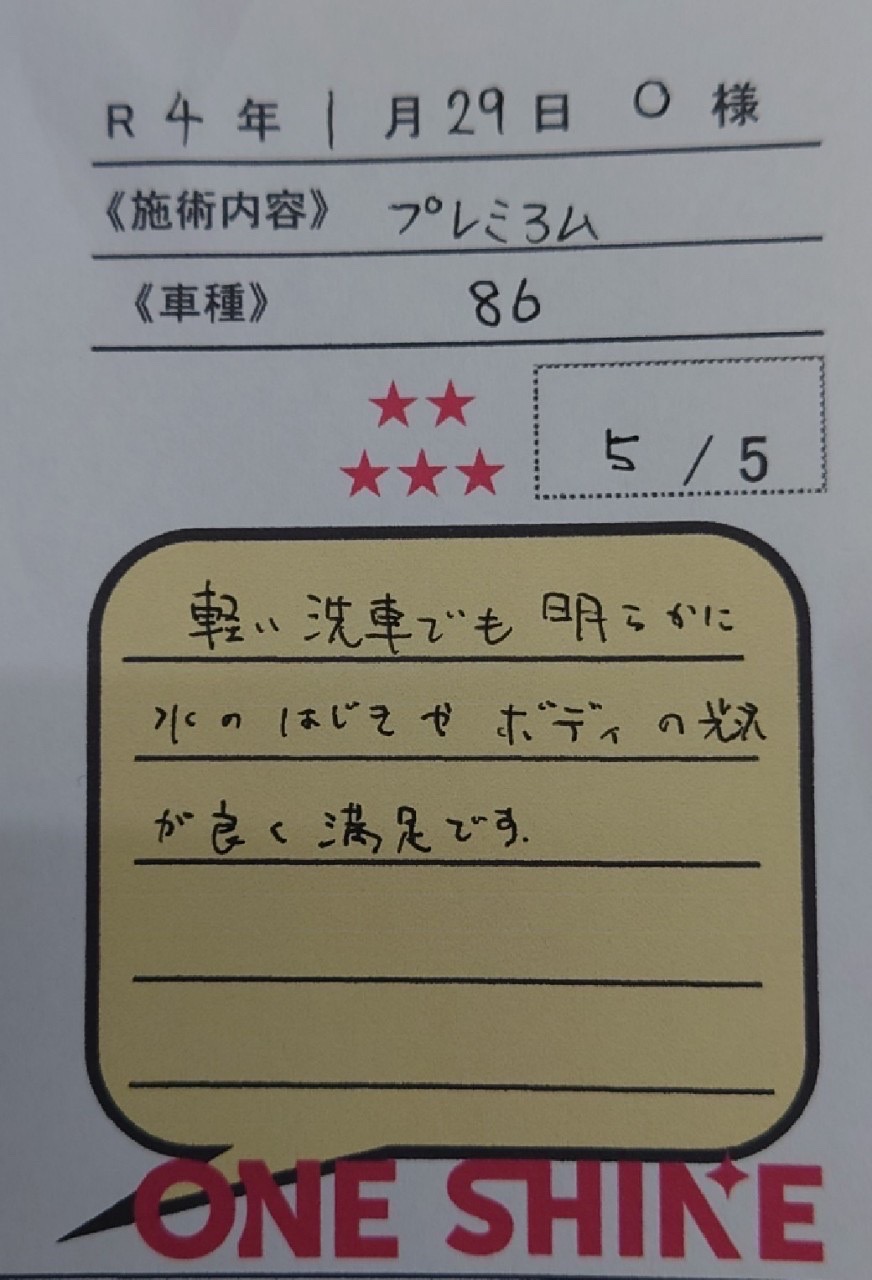 R 4 年 1 月 29 日 O 様
《施術内容》 プレミヨム
《車種》 86
5 / 5
軽い洗車でも明らかに
水のはじきやボディの光沢
が良く満足です.
ONE SHINE